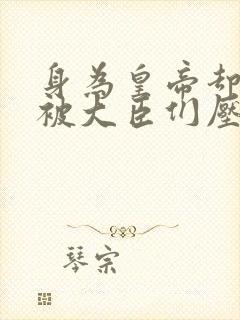 身為皇帝却
被大臣们壓
琴宗